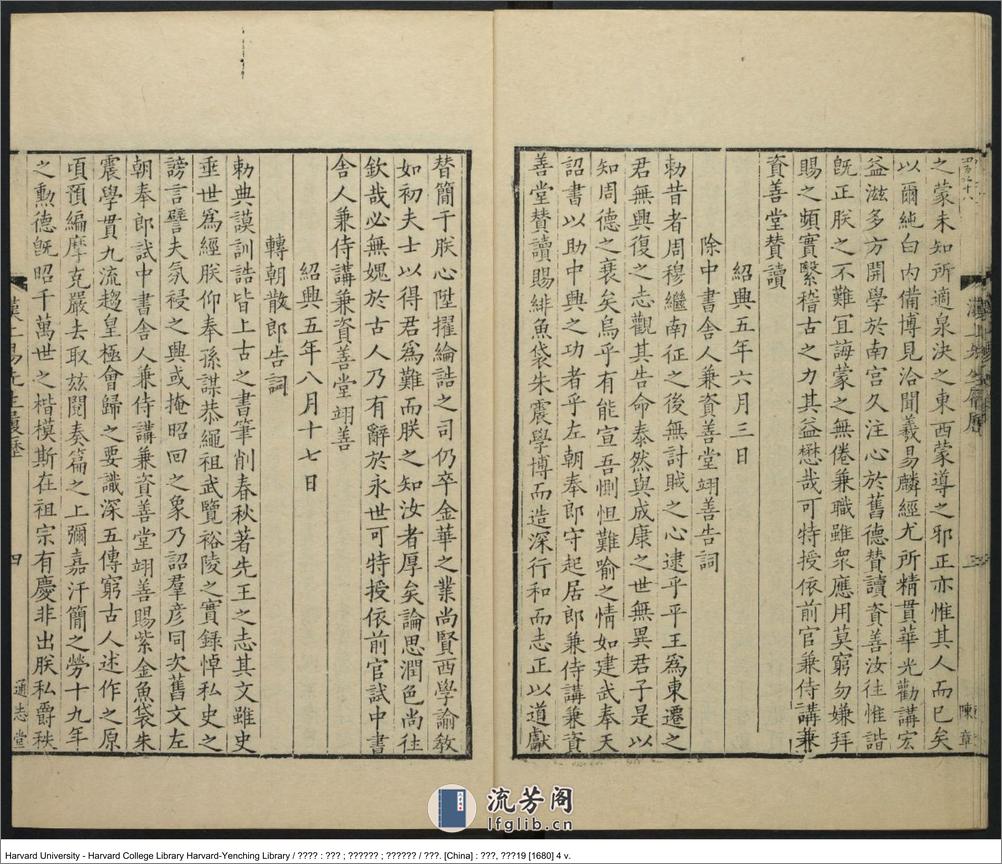 之蒙未知所適泉決之東西蒙導之邪正亦惟其人而已矣
以爾純白内備博見洽聞羲易麟經尤所精貫華光勸講宏
益滋多方開學於南宫久注心於舊德賛讀資善汝往惟諧
旣正朕之不難冝誨蒙之無倦兼職雖衆應用莫窮勿嫌拜
賜之頻實繫稽古之力其益懋哉可特授依前官兼侍講兼
資善堂賛讀
紹興五年六月三日
除中書舍人兼資善堂翊善告詞
勑昔者周穆繼南征之後無討賊之心逮乎平王爲東遷之
君無興復之志觀其告命泰然與成康之世無異君子是以
知周德之衰矣烏乎有能宣吾惻怛難喻之情如建武奉天
詔書以助中興之功者乎左朝奉郎守起居郎兼侍講兼資
善堂賛讀賜緋魚袋朱震學博而造深行和而志正以道獻
替簡于朕心陞擢綸誥之司仍卒金華之業尚賢西學諭敎
如初夫士以得君爲難而朕之知汝者厚矣論思潤色尚往
欽哉必無媿於古人乃有辭於永世可特授依前官試中書
舍人兼侍講兼資善堂翊善
紹興五年八月十七日
轉朝散郎告詞
勑典謨訓誥皆上古之書筆削春秋著先王之志其文雖史
垂世爲經朕仰奉孫謀恭繩祖武覽裕陵之實録悼私史之
謗言譬夫氛祲之興或掩昭回之象乃詔羣彦同次舊文左
朝奉郎試中書舍人兼侍講兼資善堂翊善賜紫金魚袋朱
震學貫九流趨皇極會歸之要識深五傳窮古人述作之原
項預編摩克嚴去取兹閱奏篇之上彌嘉汗簡之勞十九年
之勲德旣昭千萬世之楷模斯在祖宗有慶非出朕私爵秩
四
通志堂
陳章
流芳阁
lfglib.cn
Harvard University - Harvard College Library Harvard-Yenching Library / ???? : ??? ; ?????? ; ?????? / ???. [China] : ???, ???19 [1680] 4 v.